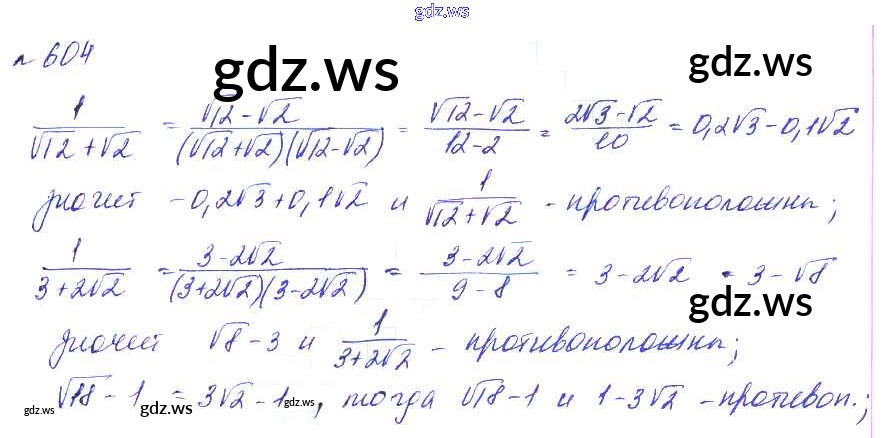 gdz.ws
№ 604
gdz.ws gdz.ws
1/(√12+√2) = (√12-√2)/((√12+√2)(√12-√2)) = (√12-√2)/(12-2) = (2√3-√2)/10 = 0,2√3-0,1√2
значит -0,2√3+0,1√2 и 1/(√12+√2) - противоположны;
1/(3+2√2) = (3-2√2)/((3+2√2)(3-2√2)) = (3-2√2)/(9-8) = 3-2√2 = 3-√8
gdz.ws
значит √8-3 и 1/(3+2√2) - противоположны;
√18-1 = 3√2-1, тогда √18-1 и 1-3√2 - противоп.;
gdz.ws gdz.ws gdz.ws gdz.ws